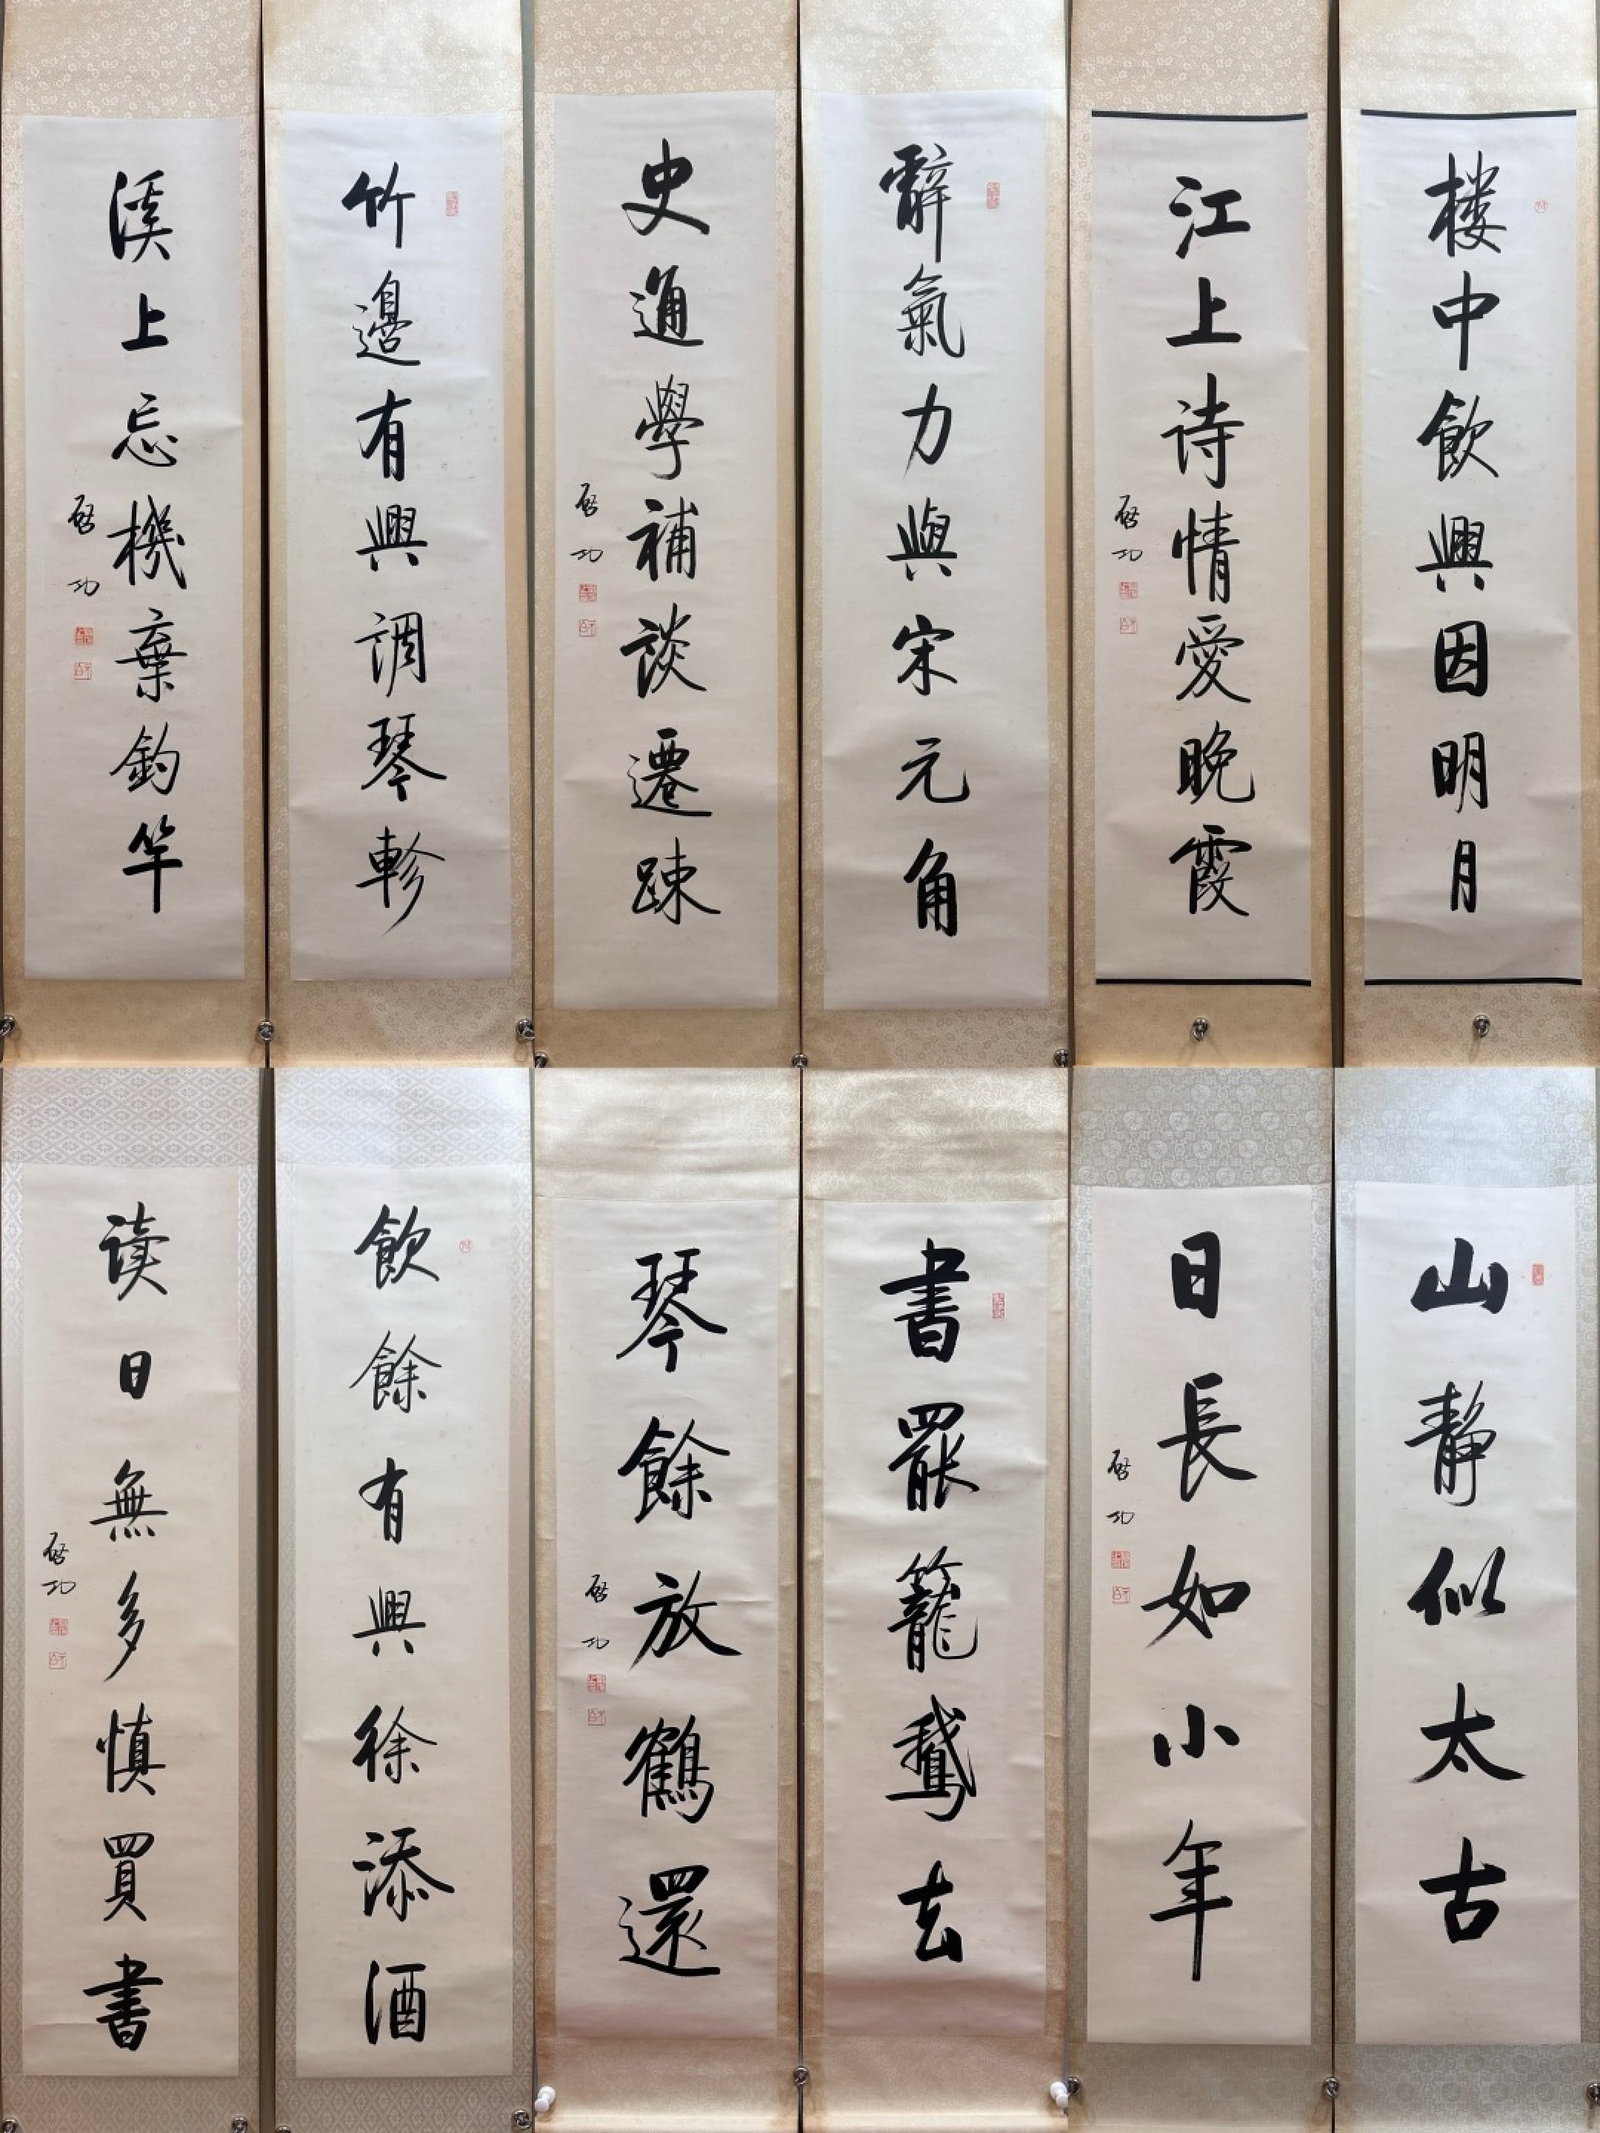 楼中飲興因明月
江上诗情愛晚霞
启功
辭氣力與宋元角
史通學補談遷踈
启功
竹邊有興調琴軫
溪上忘機棄釣竿
启功
山静似太古
日長如小年
启功
書罷籠鵞去
琴餘放鶴還
启功
飲餘有興徐添酒
读日無多慎買書
启功